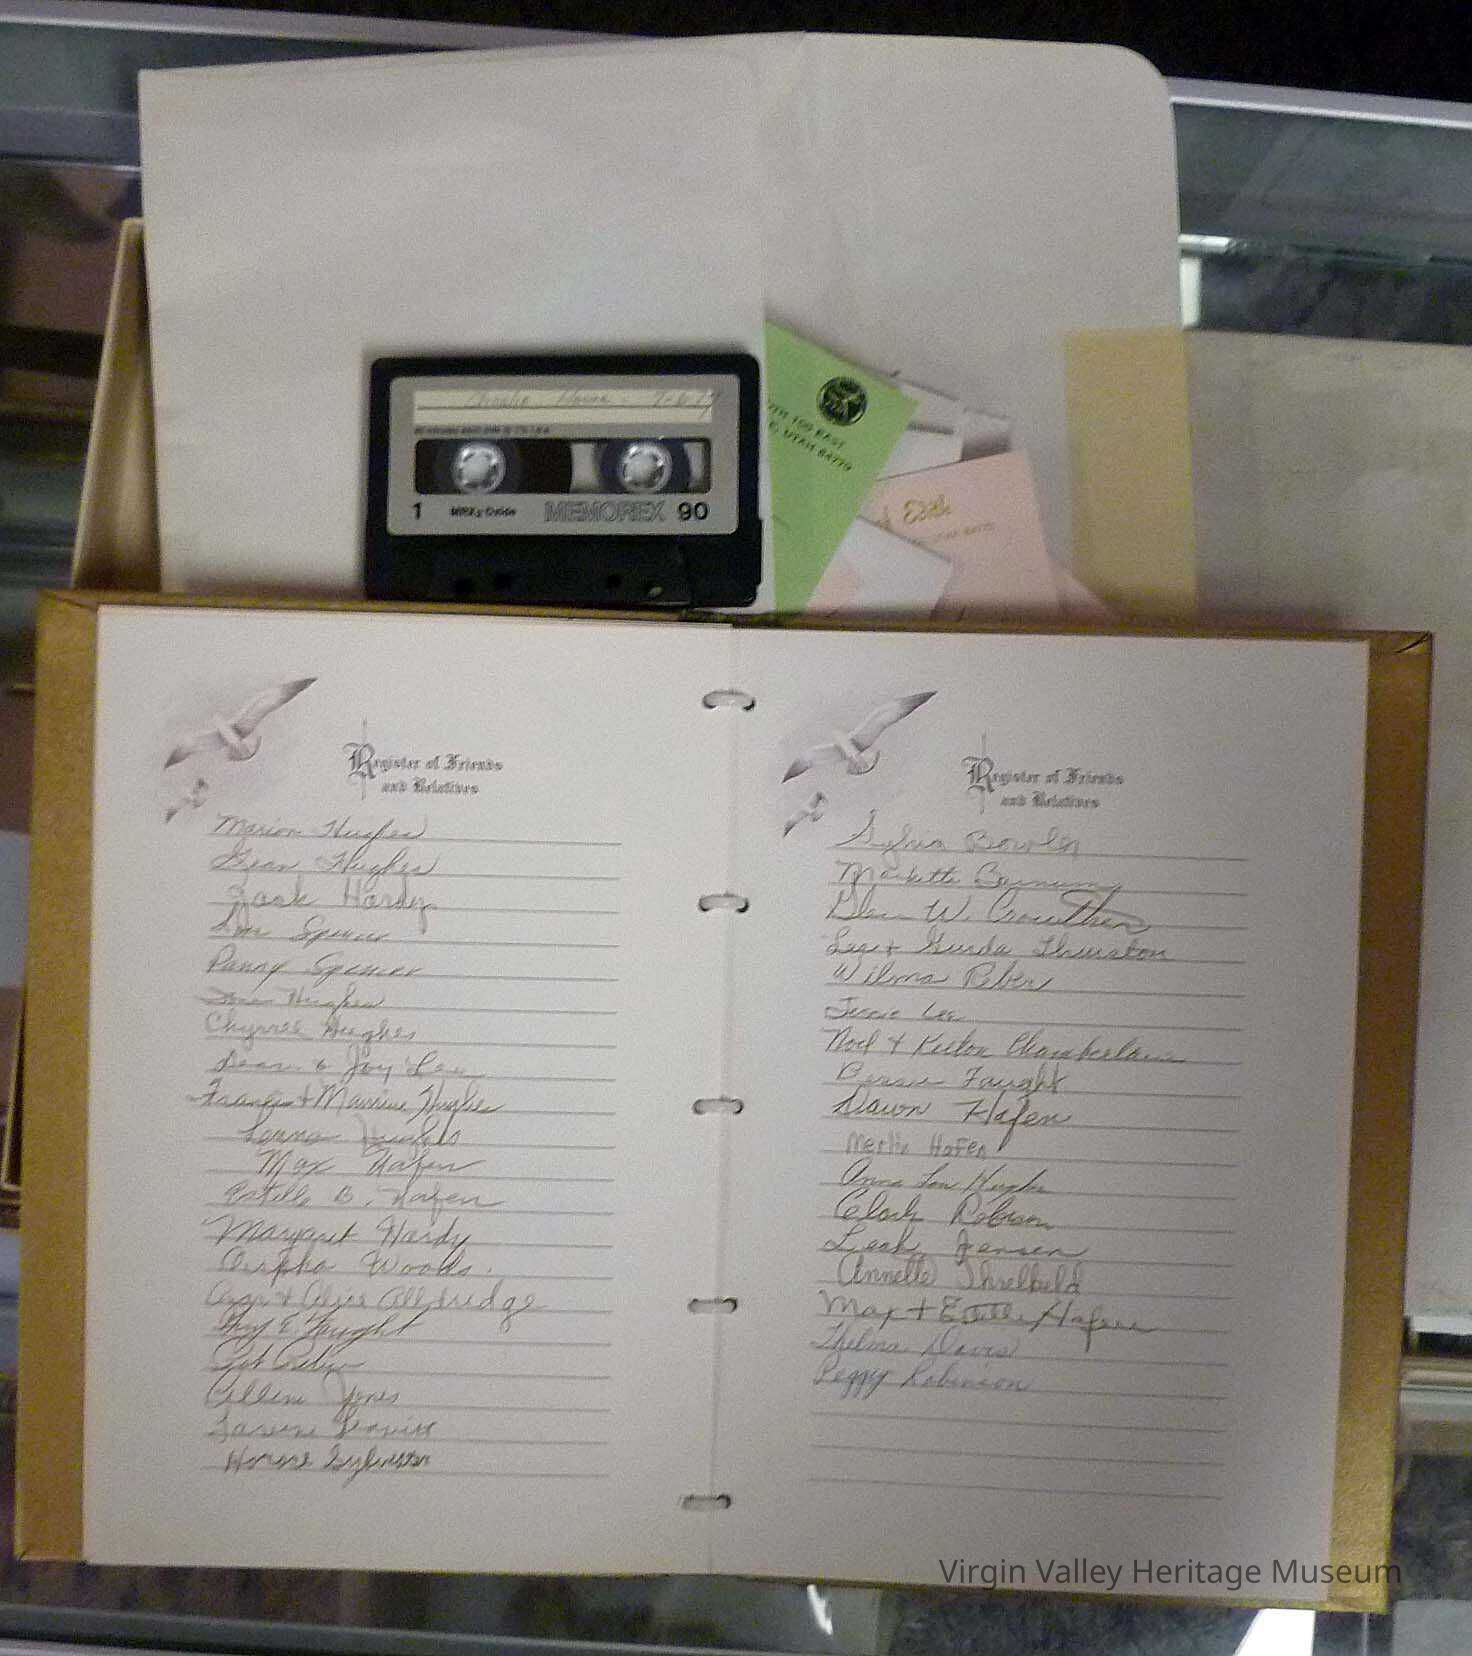 7-6-79
1 MRX3 Oxide MEMOREX 90
100 EAST
UTAH 84770
Edith
Register of Friends
and Relatives
Marion Hughes
Jean Hughes
Jack Hardy
Spencer
Panny Spencer
Hughes
Chyrrel Hughes
Dean & Joy Lee
Francis + Maurine Hughes
Lorna Hughes
Max Hafen
Estella B. Hafen
Margaret Hardy
Orpha Woods.
+ Alice Alldredge
E. Faught
Jones
Leavitt
Sylvester
Register of Friends
and Relatives
Sylvia Bowler
W. Crowther
+ Gerda Thurston
Wilma Reber
Jessie Lee
Noel + Chamberlain
Bessie Faught
Dawn Hafen
Hafen
Anna Lou Hughes
Clark Robison
Leah Jensen
Annette Threlkeld
Max + Estella Hafen
Thelma Davis
Peggy Robinson
Virgin Valley Heritage Museum